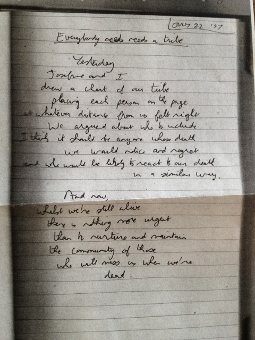 Everybody needs needs a tribe
Yesterday
and I
drew a chart of our tribe
placing each person on the page
at whatever distance from us felt right
We argued about who to include
I think it should be anyone whose death
we would notice and regret
and who would be likely to react to our death
in a similar way.
And now,
whilst we're still alive
there is nothing more urgent
than to nurture and maintain
the community of those
who will miss us when we're
dead